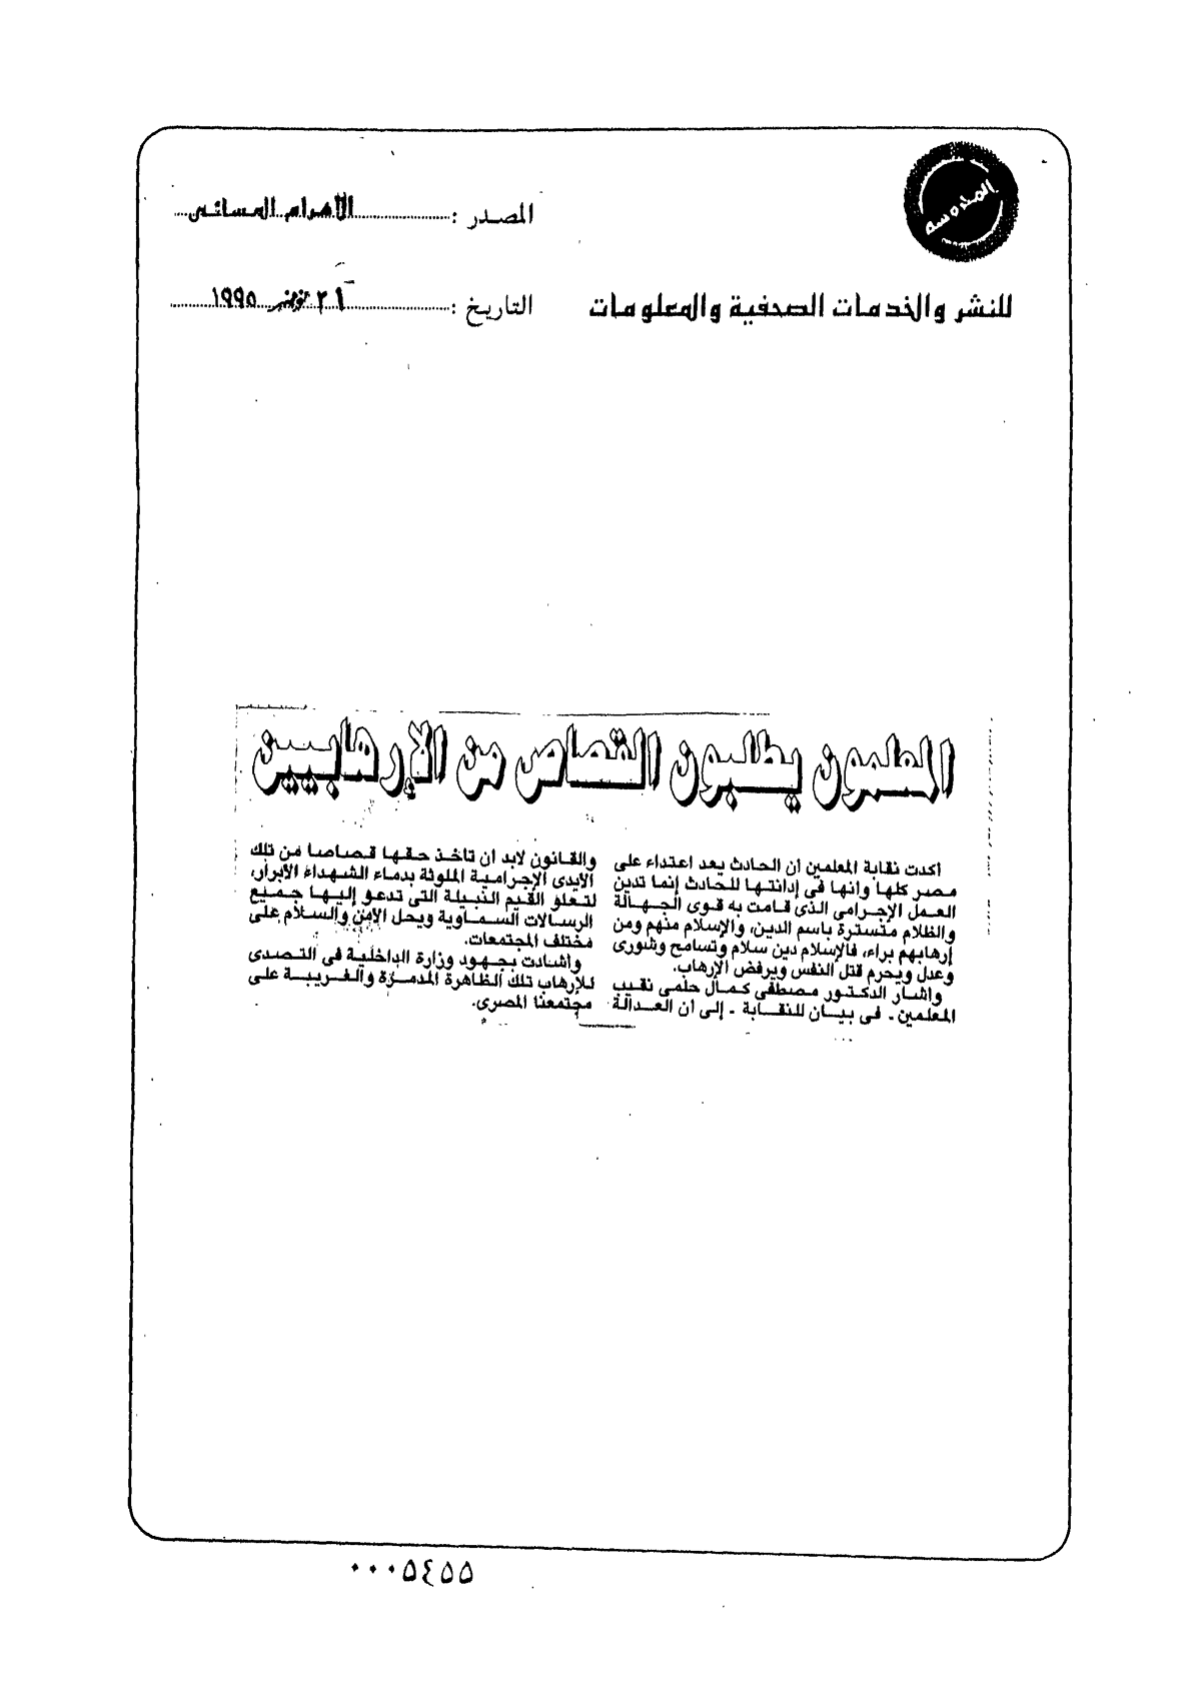 المدوسه
المصدر : الأهرام المسائى
للنشر والخدمات الصحفية والمعلومات
التاريخ : ٢١ نوفمبر ١٩٩٥
المعلمون يطلبون القصاص من الإرهابيين
اكدت نقابة المعلمين ان الحادث يعد اعتداء على
مصر كلها وانها فى إدانتها للحادث إنما تدين
العمل الإجرامى الذى قامت به قوى الجهالة
والظلام متسترة باسم الدين، والإسلام منهم ومن
إرهابهم براء، فالإسلام دين سلام وتسامح وشورى
وعدل ويحرم قتل النفس ويرفض الإرهاب.
واشار الدكتور مصطفى كمال حلمى نقيب
المعلمين - فى بيان للنقابة - إلى ان العدالة
والقانون لابد ان تاخذ حقها قصاصا من تلك
الايدى الإجرامية الملوثة بدماء الشهداء الابرار،
لتعلو القيم النبيلة التى تدعو إليها جميع
الرسالات السماوية ويحل الامن والسلام على
مختلف المجتمعات.
واشادت بجهود وزارة الداخلية فى التصدى
للإرهاب تلك الظاهرة المدمرة والغريبة على
مجتمعنا المصرى.
٠٠٠٥٤٥٥